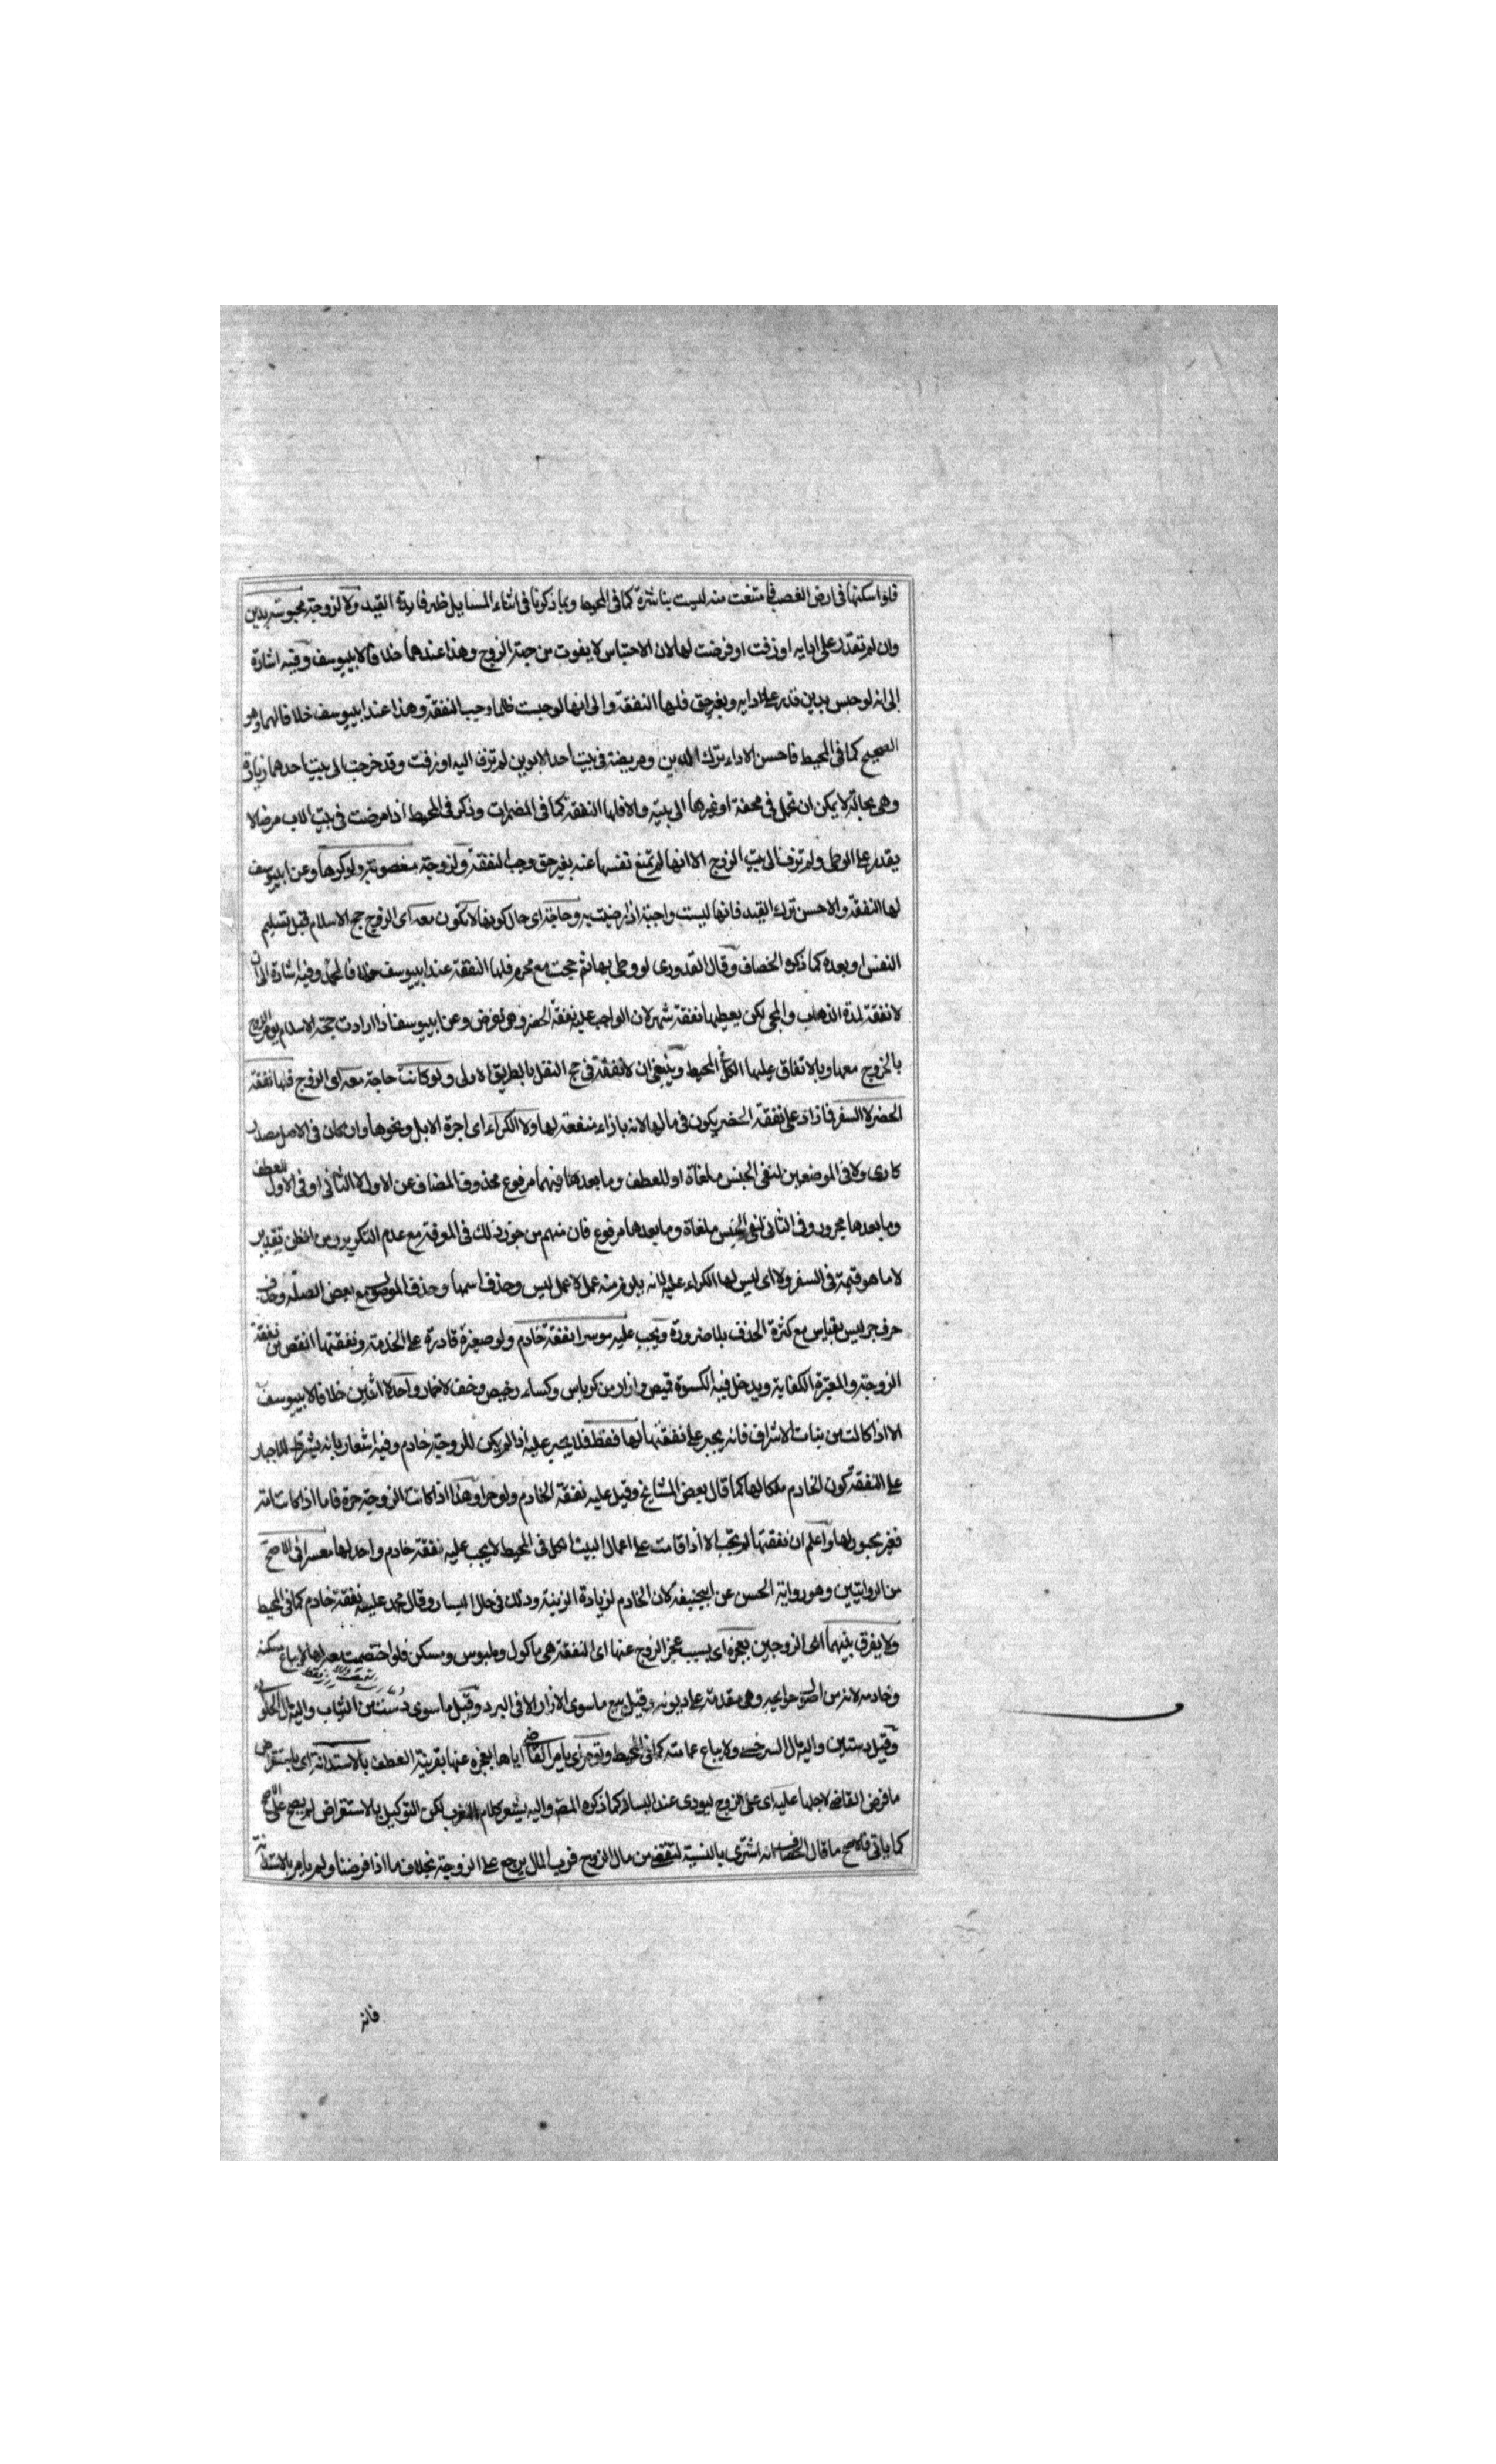 فلو اسكنها فى ارض الغصب فامتنعت منه ليست بناشزة كما فى المحيط وبما ذكرنا فى اثناء المسايل ظهر فايدة القيد ولا لزوجة محبوسة بدين
وان لم تقدر على ادايه او زفت او فرضت لها لان الاحتباس لا يفوت من جهة الزوج وهذا عندهما خلافا لابييوسف وفيه اشارة
الى انه لو حبس بدين قدر على ادايه وبغير حق فلها النفقة والى انها لو حبست ظلما وجب النفقة وهذا عند ابييوسف خلافا لهما وهو
الصحيح كما فى المحيط فاحسن الاداء ترك الدين ومريضة فى بيت احد الابوين لم تزف اليه او زفت وقد خرجت الى بيت احدهما زيارة
وهى بحالة لا يمكن ان تحمل فى محفة او غيرها الى بيته والا فلها النفقة كما فى المضمرات وذكر فى المحيط اذا مرضت فى بيت الاب مرضا لا
يقدر على الوطى ولم تزف الى بيت الزوج الا انها لم تمنع نفسها عنه بغير حق وجب النفقة ولزوجة مغصوبة ولو كرها وعن ابييوسف
لها النفقة والاحسن ترك القيد فانها ليست واجبة اذا رضيت به وحاجة اى حال كونها لا تكون معه اى الزوج حج الاسلام قبل تسليم
النفس او بعده كما ذكره الخصاف وقال القدورى لو وطى بها ثم حجت مع محرم فلها النفقة عند ابييوسف خلافا لمحمد وفيه اشارة الى ان
لا نفقة لمدة الذهاب والمجى لكن يعطيها نفقة شهر لان الواجب عليه نفقة الحضر وهى تفرض وعن ابييوسف اذا ارادت حجة الاسلام يومر الزوج
بالخروج معها وبالاتفاق عليها الكل فى المحيط وينبغى ان لا نفقة فى حج النفل بالطريق الاولى ولو كانت حاجة معه اى الزوج فلها نفقة
الحضر لا السفر فما زاد على نفقة الحضر يكون فى مالها لانه بازاء منفعة لها ولا الكراء اى اجرة الابل ونحوها وان كان فى الاصل مصدر
كارى ولا فى الموضعين لنفى الجنس ملغاة او للعطف وما بعدها فيهما مرفوع محذوف المضاف عن الاول لا الثانى او فى الاول للعطف
وما بعدها مجرور وفى الثانى لنفى الجنس ملغاة وما بعدها مرفوع فان منهم من جوز ذلك فى المعرفة مع عدم التكرير ومن الظن تقدير
لا ما هو قيمة فى السفر ولا اى ليس لها الكراء عليه لانه يلزم منه عمل لا عمل ليس وحذف اسمها وحذف الموصول مع بعض الصلة وحذف
حرف جر ليس بقياس مع كثرة الحذف بلا ضرورة ويجب عليه موسرا نفقة خادم ولو صغيرة قادرة على الخدمة ونفقتها انقص من نفقة
الزوجة والمعتبرة الكفاية ويدخل فيه الكسوة قميص وازار من كرباس وكساء رخيص وخف لا خمار واحد لا اثنين خلافا لابييوسف
الا اذا كانت من بنات الاشراف فانه يجبر على نفقتهما لها فقط فلا يجبر عليه اذا لم يكن للزوجة خادم وفيه اشعار بانه يشترط للاجبار
على النفقة كون الخادم ملكا لها كما قال بعض المشايخ وقيل عليه نفقة الخادم ولو حرا وهذا اذا كانت الزوجة حرة فاما اذا كانت امة
فغير مجبور لها واعلم ان نفقتها لم تجب الا اذا قامت على اعمال البيت الكل فى المحيط لا يجب عليه نفقة خادم واحد لها معسرا فى الاصح
من الروايتين وهو رواية الحسن عن ابيحنيفة لان الخادم لزيادة الزينة وذلك فى حال اليسار وقال محمد عليه نفقة خادم كما فى المحيط
ولا يفرق بينهما اى الزوجين بعجزه اى بسبب عجز الزوج عنها اى النفقة هى ماكول وملبوس ومسكن فلو اختصمت لا يباع مسكنه
وخادمه لانه من اصول حوايجه وهى مقدمة على ديونه وقيل يبيع ما سوى الازار الا فى البرد وقيل ما سوى دست من الثياب واليه مال الحلوانى
وقيل دستين واليه مال السرخسى ولا يباع عمامته كما فى المحيط وتومر اى يامر القاضى اياها بعجزه عنها بقرينة العطف بالاستدانة اى باستقراض
ما فرض القاضى لاجلها عليه اى على الزوج ليودى عند اليسار كما ذكره المص واليه يشير كلام المغرب لكن التوكيل بالاستقراض لم يصح على الاصح
كما ياتى فالاصح ما قال الخصاف انه اشترى بالنسية لتقضى من مال الزوج فرب المال يرجع على الزوجة بخلاف ما اذا فرضنا ولم يامر بالاستدانة
فانه